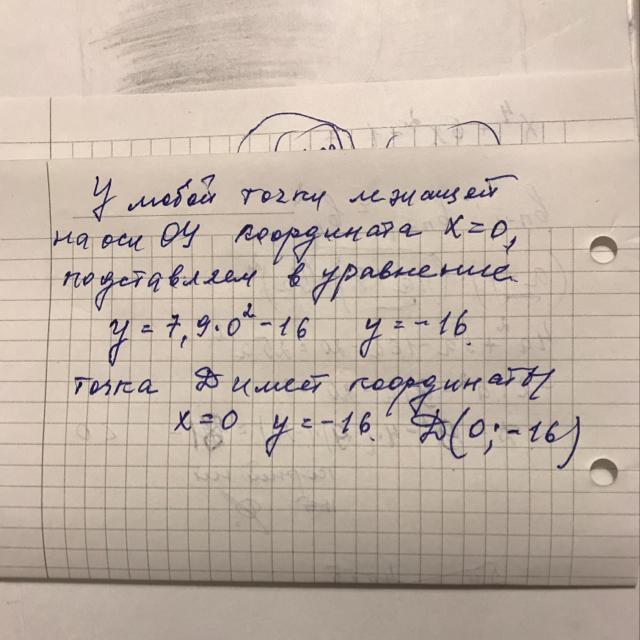 У любой точки лежащей
на оси ОУ координата x=0,
подставляем в уравнение
y = 7,9·0²-16 y = -16.
точка D имеет координаты
x=0 y=-16. D(0;-16)